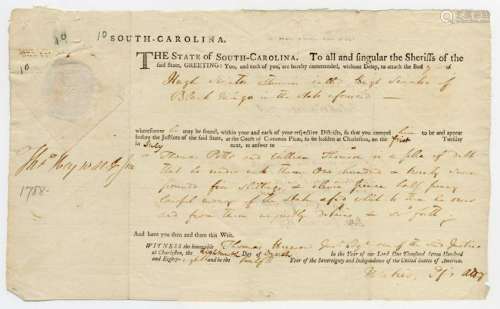 10 SOUTH-CAROLINA.
10
THE STATE OF SOUTH-CAROLINA. To all and singular the Sheriffs of the
said State, GREETING: You, and each of you, are hereby commanded, without Delay, to attach the Body of
Hugh
Black Mingo in the state aforesaid —
wheresoever he may be found, within your and each of your respective Districts, so that you compel him to be and appear
before the Justices of the said State, at the Court of Common Pleas, to be holden at Charleston, on the first Tuesday
in July next, to answer to
Thomas Potts and William Thomson in a plea of debt
that he render unto them One hundred & twenty seven
pounds five shillings & eleven pence half penny
lawful money of the state aforesaid which to them he owes
and from them unjustly detains &
And have you then and there this Writ.
WITNESS the honorable Thomas Heyward Junr Esqr one of the said Justices
at Charleston, the Day of in the Year of our Lord One Thousand Seven Hundred
and Eighty-eight and in the twelfth Year of the Sovereignty and Independence of the United States of America.
Thos Heyward Jun
1788